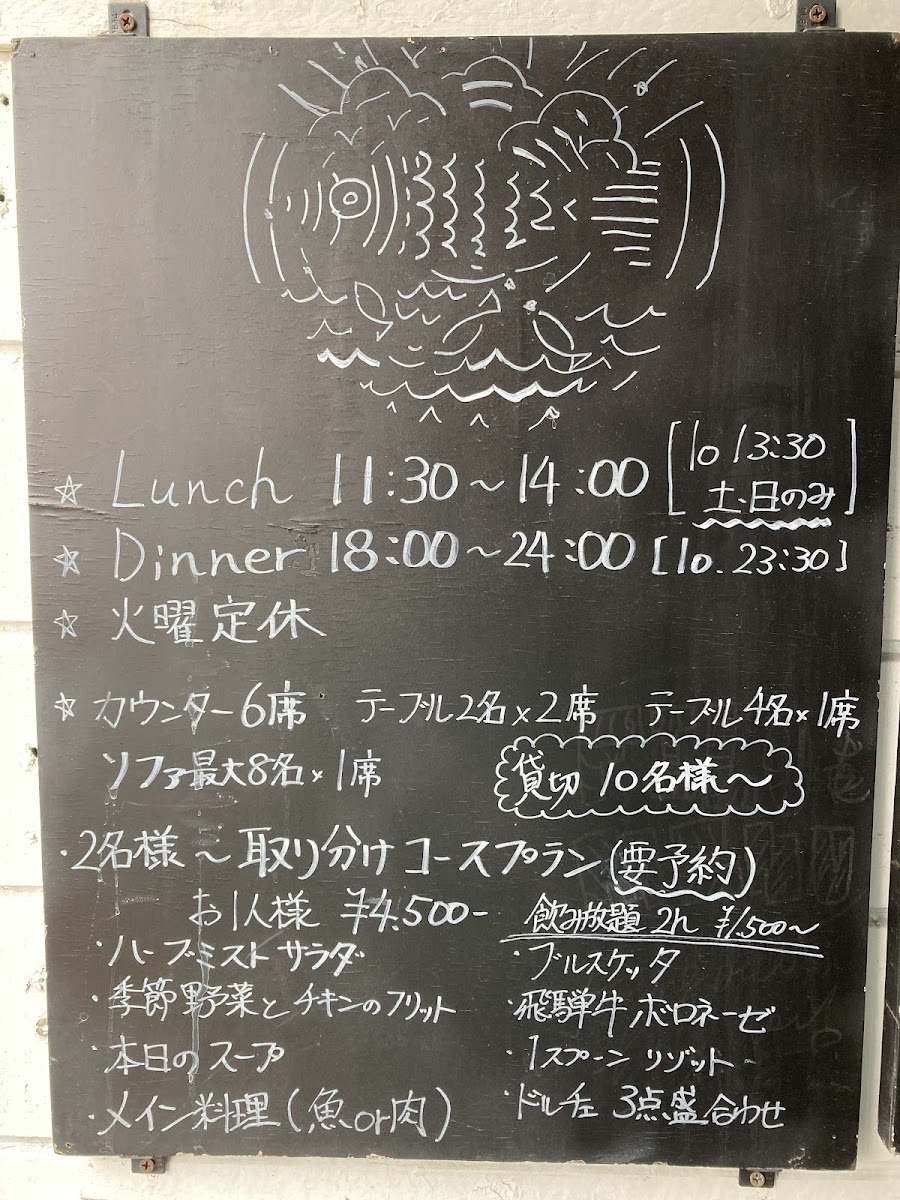 ☆ Lunch 11:30～14:00 [lo 13:30 土・日のみ]
☆ Dinner 18:00～24:00 [lo. 23:30]
☆ 火曜定休
☆ カウンター6席 テーブル2名×2席 テーブル4名×1席
ソファ最大8名×1席
貸切 10名様～
・2名様～取り分けコースプラン(要予約)
お1人様 ¥4,500-
飲み放題 2h ¥1,500～
・ハーブミストサラダ
・ブルスケッタ
・季節野菜とチキンのフリット
・飛騨牛ボロネーゼ
・本日のスープ
・1スプーンリゾット
・メイン料理(魚or肉)
・ドルチェ 3点盛合わせ